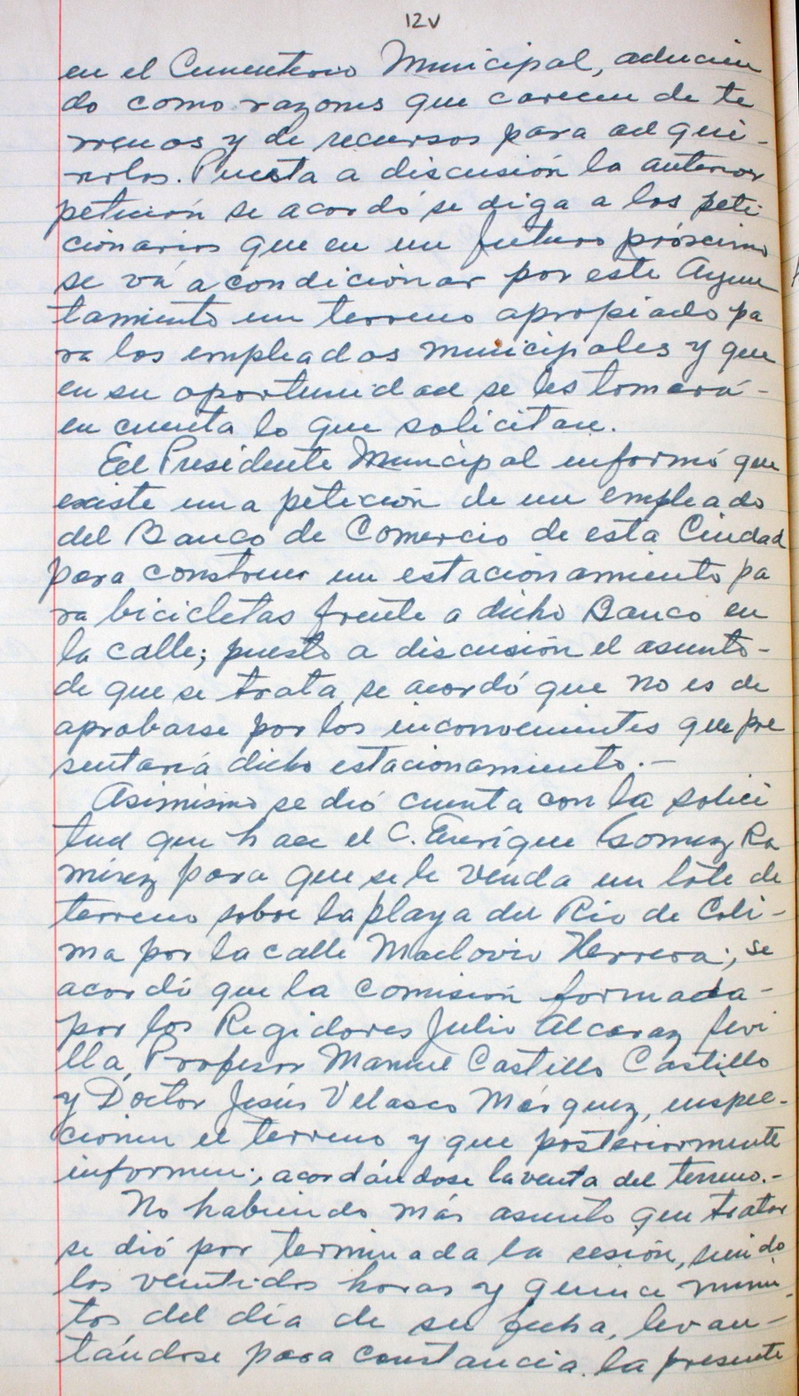 12v
en el Cementerio Municipal, aducien
do como razones que carecen de te
rrenos y de recursos para adqui-
rirlos. Puesta a discusión la anterior
petición se acordó se diga a los peti
cionarios que en un futuro próximo
se vá acondicionar por este Ayun
tamiento un terreno apropiado pa
ra los empleados municipales y que
en su oportunidad se les tomará-
en cuenta lo que solicitan.
El Presidente Municipal informó que
existe una petición de un empleado
del Banco de Comercio de esta Ciudad
para construir un estacionamiento pa
ra bicicletas frente a dicho Banco en
la calle; puesto a discusión el asunto-
de que se trata se acordó que no es de
aprobarse por los inconvenientes que pre
sentaría dicho estacionamiento.-
Asimismo se dió cuenta con la solici
tud que hace el C. Enrique Gomez Ra
mírez para que se le venda un lote de
terreno sobre la playa del Río de Coli-
ma por la calle Maclovio Herrera; se
acordó que la comisión formada-
por los Regidores Julio Alcaraz Sevi
lla, Profesor Manuel Castillo Castillo
y Doctor Jesús Velasco Márquez, inspec-
cionen el terreno y que posteriormente
informen; acordándose la venta del terreno.-
No habiendo más asunto que tratar
se dió por terminada la sesión, siendo
las veintidos horas y quince minu-
tos del día de su fecha, levan-
tándose para constancia la presente